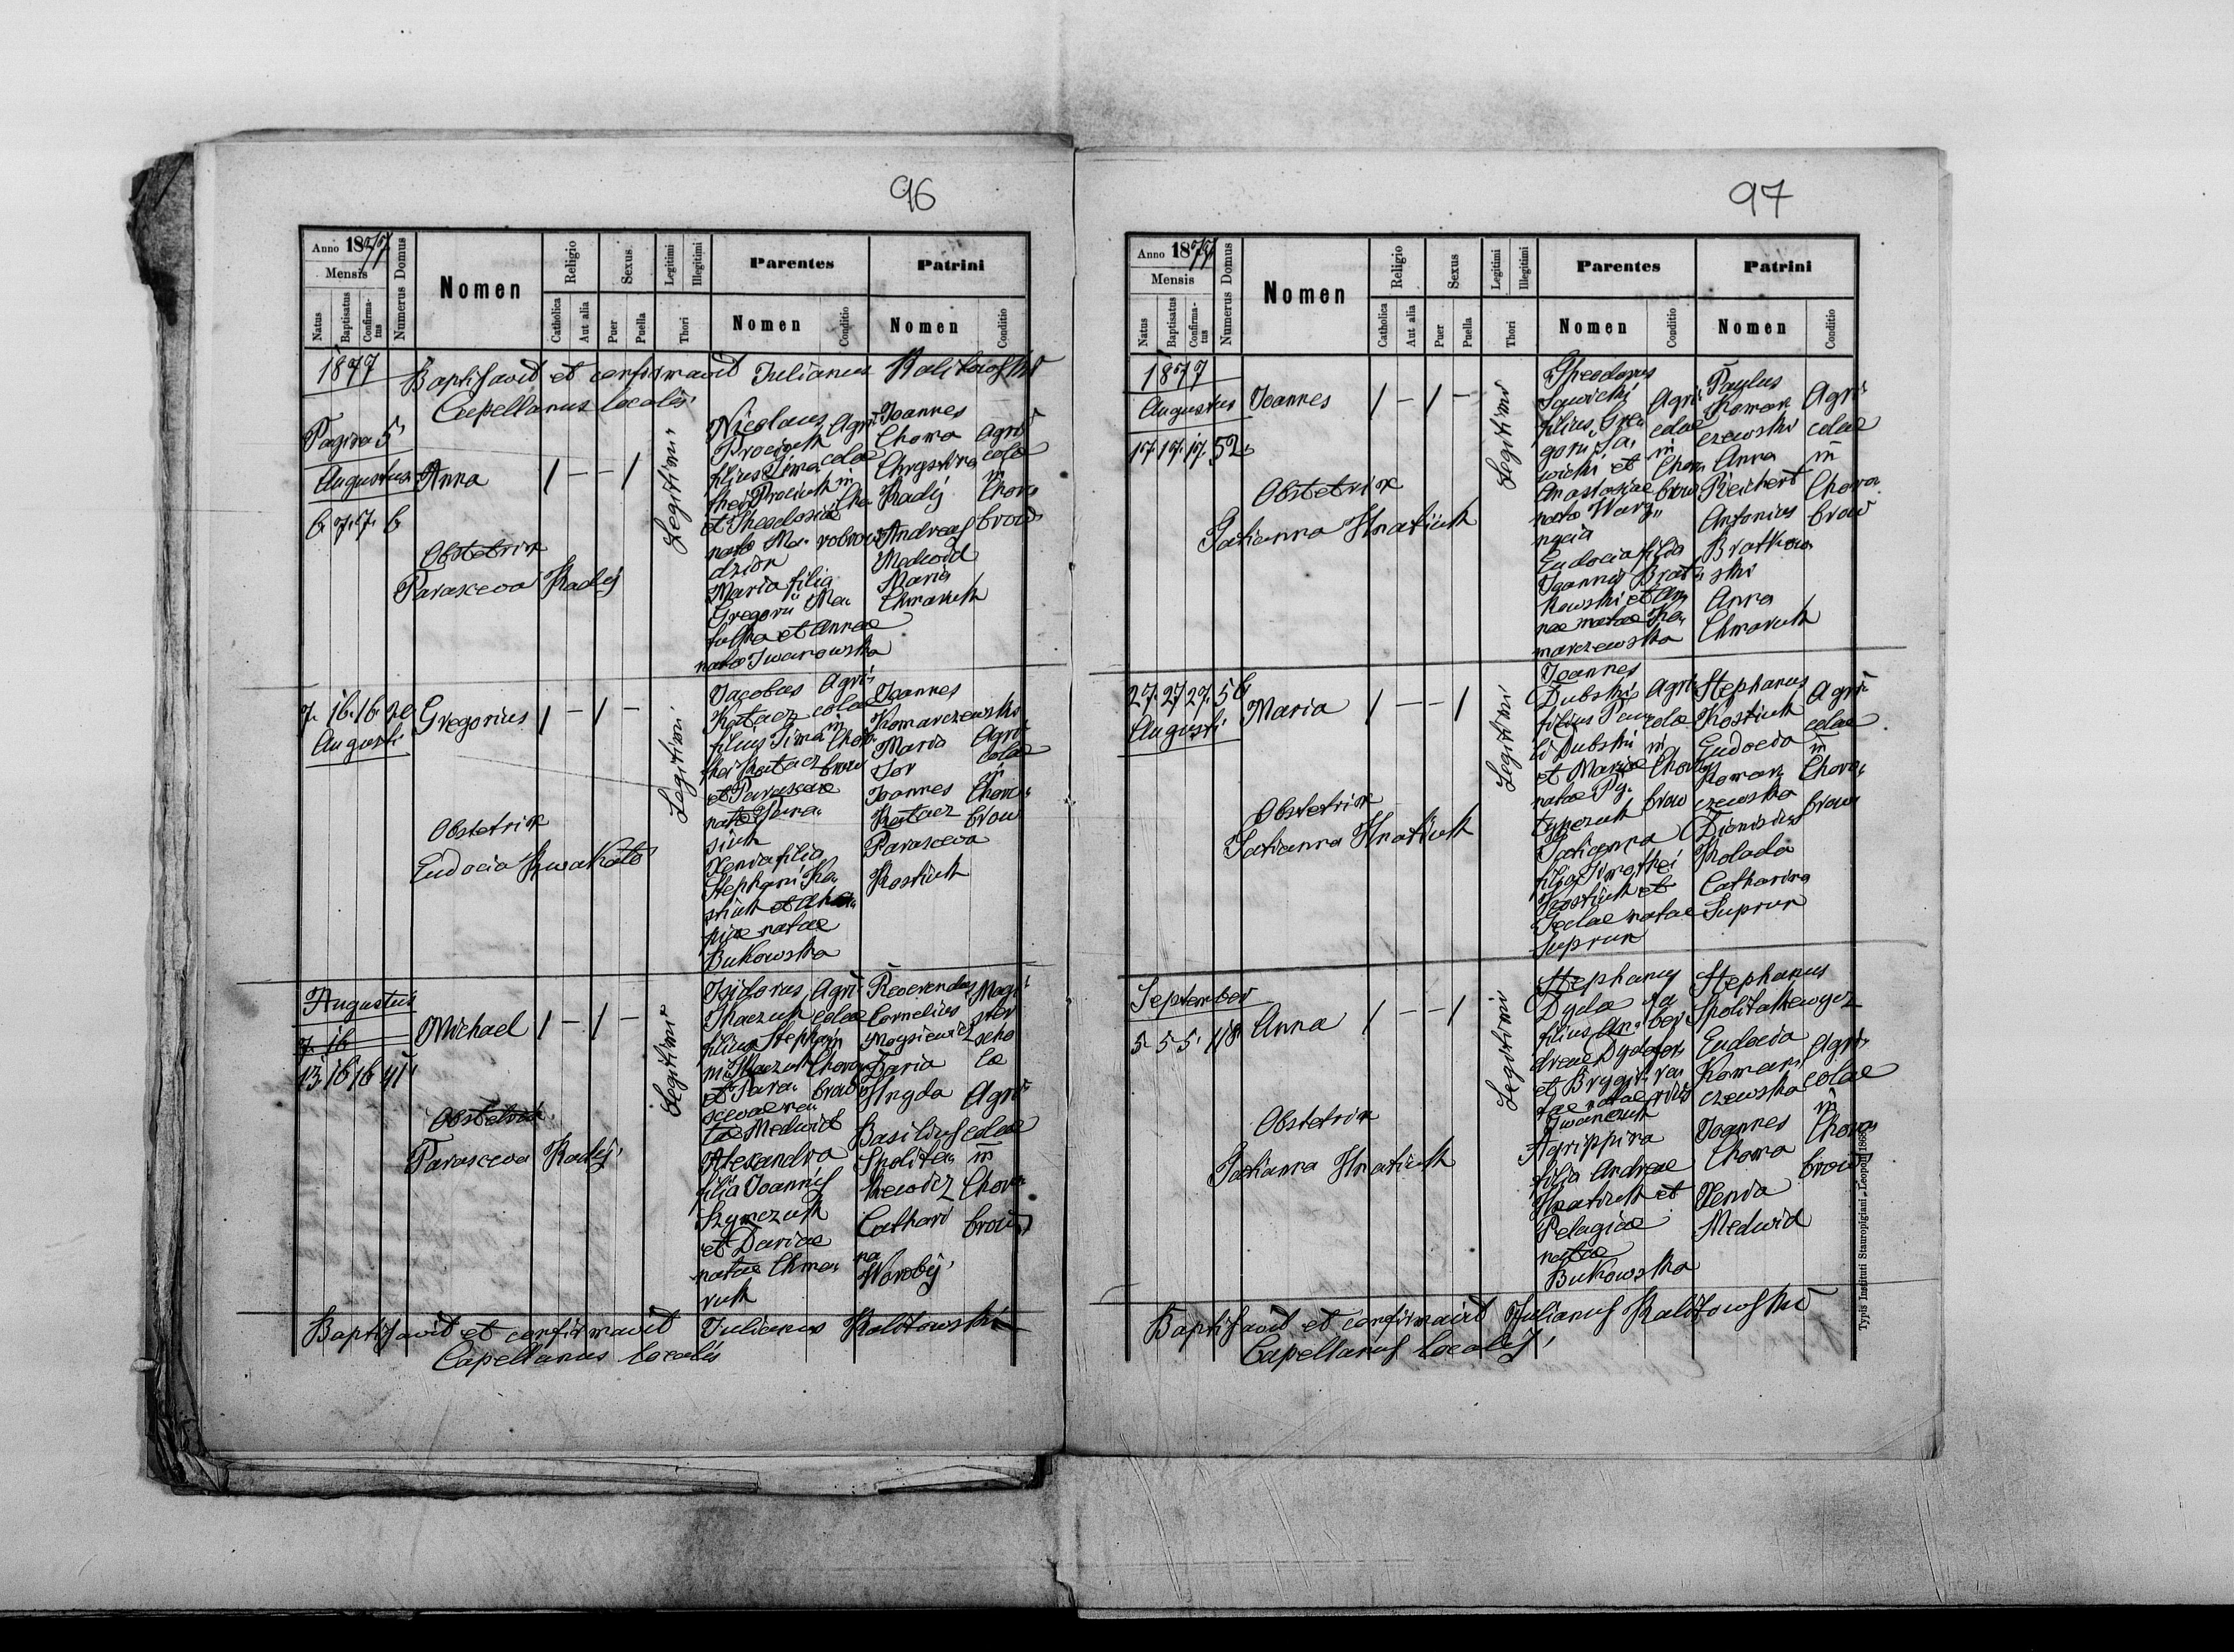 96
Anno 1877
Mensis
Natus
Baptisatus
Confirmatus
Numerus Domus
Nomen
Religio
Catholica
Aut alia
Sexus
Puer
Puella
Legitimi
Illegitimi
Thori
Parentes
Nomen
Conditio
Patrini
Nomen
Conditio
1877
Baptisavit et confirmavit Julianus Kalitowski
Capellanus localis
Pagina 5
Augustus
6. 7. 7. 6
Anna
Obstetrix
Parasceva Kadij
Legitimi
Nicolaus
Prociuk
filius Tima
thei Prociuk
et Theodosia
nata Ma
dzior
Maria filia
Gregorii Ma
tulka et Annae
nata Iwanowska
Agri
colae
in
Cho
robrow
Joannes
Choma
Chrystina
Kadij
Andreas
Medwid
Maria
Chmaruk
Agri
colae
in
Choro
brow
7. 16. 16. 20
Augusti
Gregorius
Obstetrix
Eudocia
Legitimi
Jacobus
Katacz
filius Timo
thei Katacz
et Parascevae
nata
siuk
Xenia filia
Stephani Ko
stiuk et
piae natae
Bukowska
Agri
colae
in
Choro
brow
Joannes
Komarczewski
Maria
Joannes
Katacz
Parasceva
Kostiuk
Agri
colae
in
Choro
brow
Augustus
7. 16
13 16 16 41
Michael
Obstetrix
Parasceva Kadij
Legitimi
Isidorus
Tkaczuk
filius Stepha
ni Tkaczuk
et Para
scevae na
tae Medwid
Alexandra
filia Joannis
Szymczuk
et Dariae
natae Chma
ruk
Agri
colae
Choro
brow
Reverendus
Cornelius
Moysiewicz
Daria
Hryda
Basilius
Spolita
kewicz
Cathari
na
Worobij
Magi
ster
scho
lae
Agri
colae
in
Choro
brow
Baptisavit et confirmavit Julianus Kalitowski
Capellanus localis
97
Anno 1877
Mensis
Natus
Baptisatus
Confirmatus
Numerus Domus
Nomen
Religio
Catholica
Aut alia
Sexus
Puer
Puella
Legitimi
Illegitimi
Thori
Parentes
Nomen
Conditio
Patrini
Nomen
Conditio
1877
Augustus
17. 17. 17. 52
Joannes
Obstetrix
Tatianna Hnatiuk
Legitimi
Theodorus
Sawicki
filius Gre
gorii Sa
wicki et
Anastasiae
nata Warz
nycia
Eudocia filia
Joannis Brat
kowski et An
nae natae Ko
marczewska
Agri
colae
in
Choro
brow
Paulus
Komar
czewski
Anna
Reichert
Antonius
Bratkow
ski
Anna
Chmaruk
Agri
colae
in
Choro
brow
27. 27 27. 56
Augusti
Maria
Obstetrix
Tatianna Hnatiuk
Legitimi
Joannes
Dubski
filius Pau
li Dubski
et Mariae
natae Py
typczuk
Tatianna
filia Timothei
Kostiuk et
Teclae natae
Suprun
Agri
colae
in
Choro
brow
Stephanus
Kostiuk
Eudocia
Komar
czewska
Dionisius
Kolada
Catharina
Suprun
Agri
colae
in
Choro
brow
September
5 5 5. 118
Anna
Obstetrix
Tatianna Hnatiuk
Legitimi
Stephanus
Dyda
filius An
dreae Dyda
et Brygit
tae natae
Iwanczuk
Agrippina
filia Andreae
Hnatiuk et
Pelagiae
natae
Bukowska
fa
ber
Stephanus
Spolitakewycz
Eudocia
Komar
czewska
Joannes
Choma
Xenia
Medwid
Agri
colae
in
Choro
brow
Baptisavit et confirmavit Julianus Kalitowski
Capellanus localis
Typis Instituti Stauropigiani Leopoli